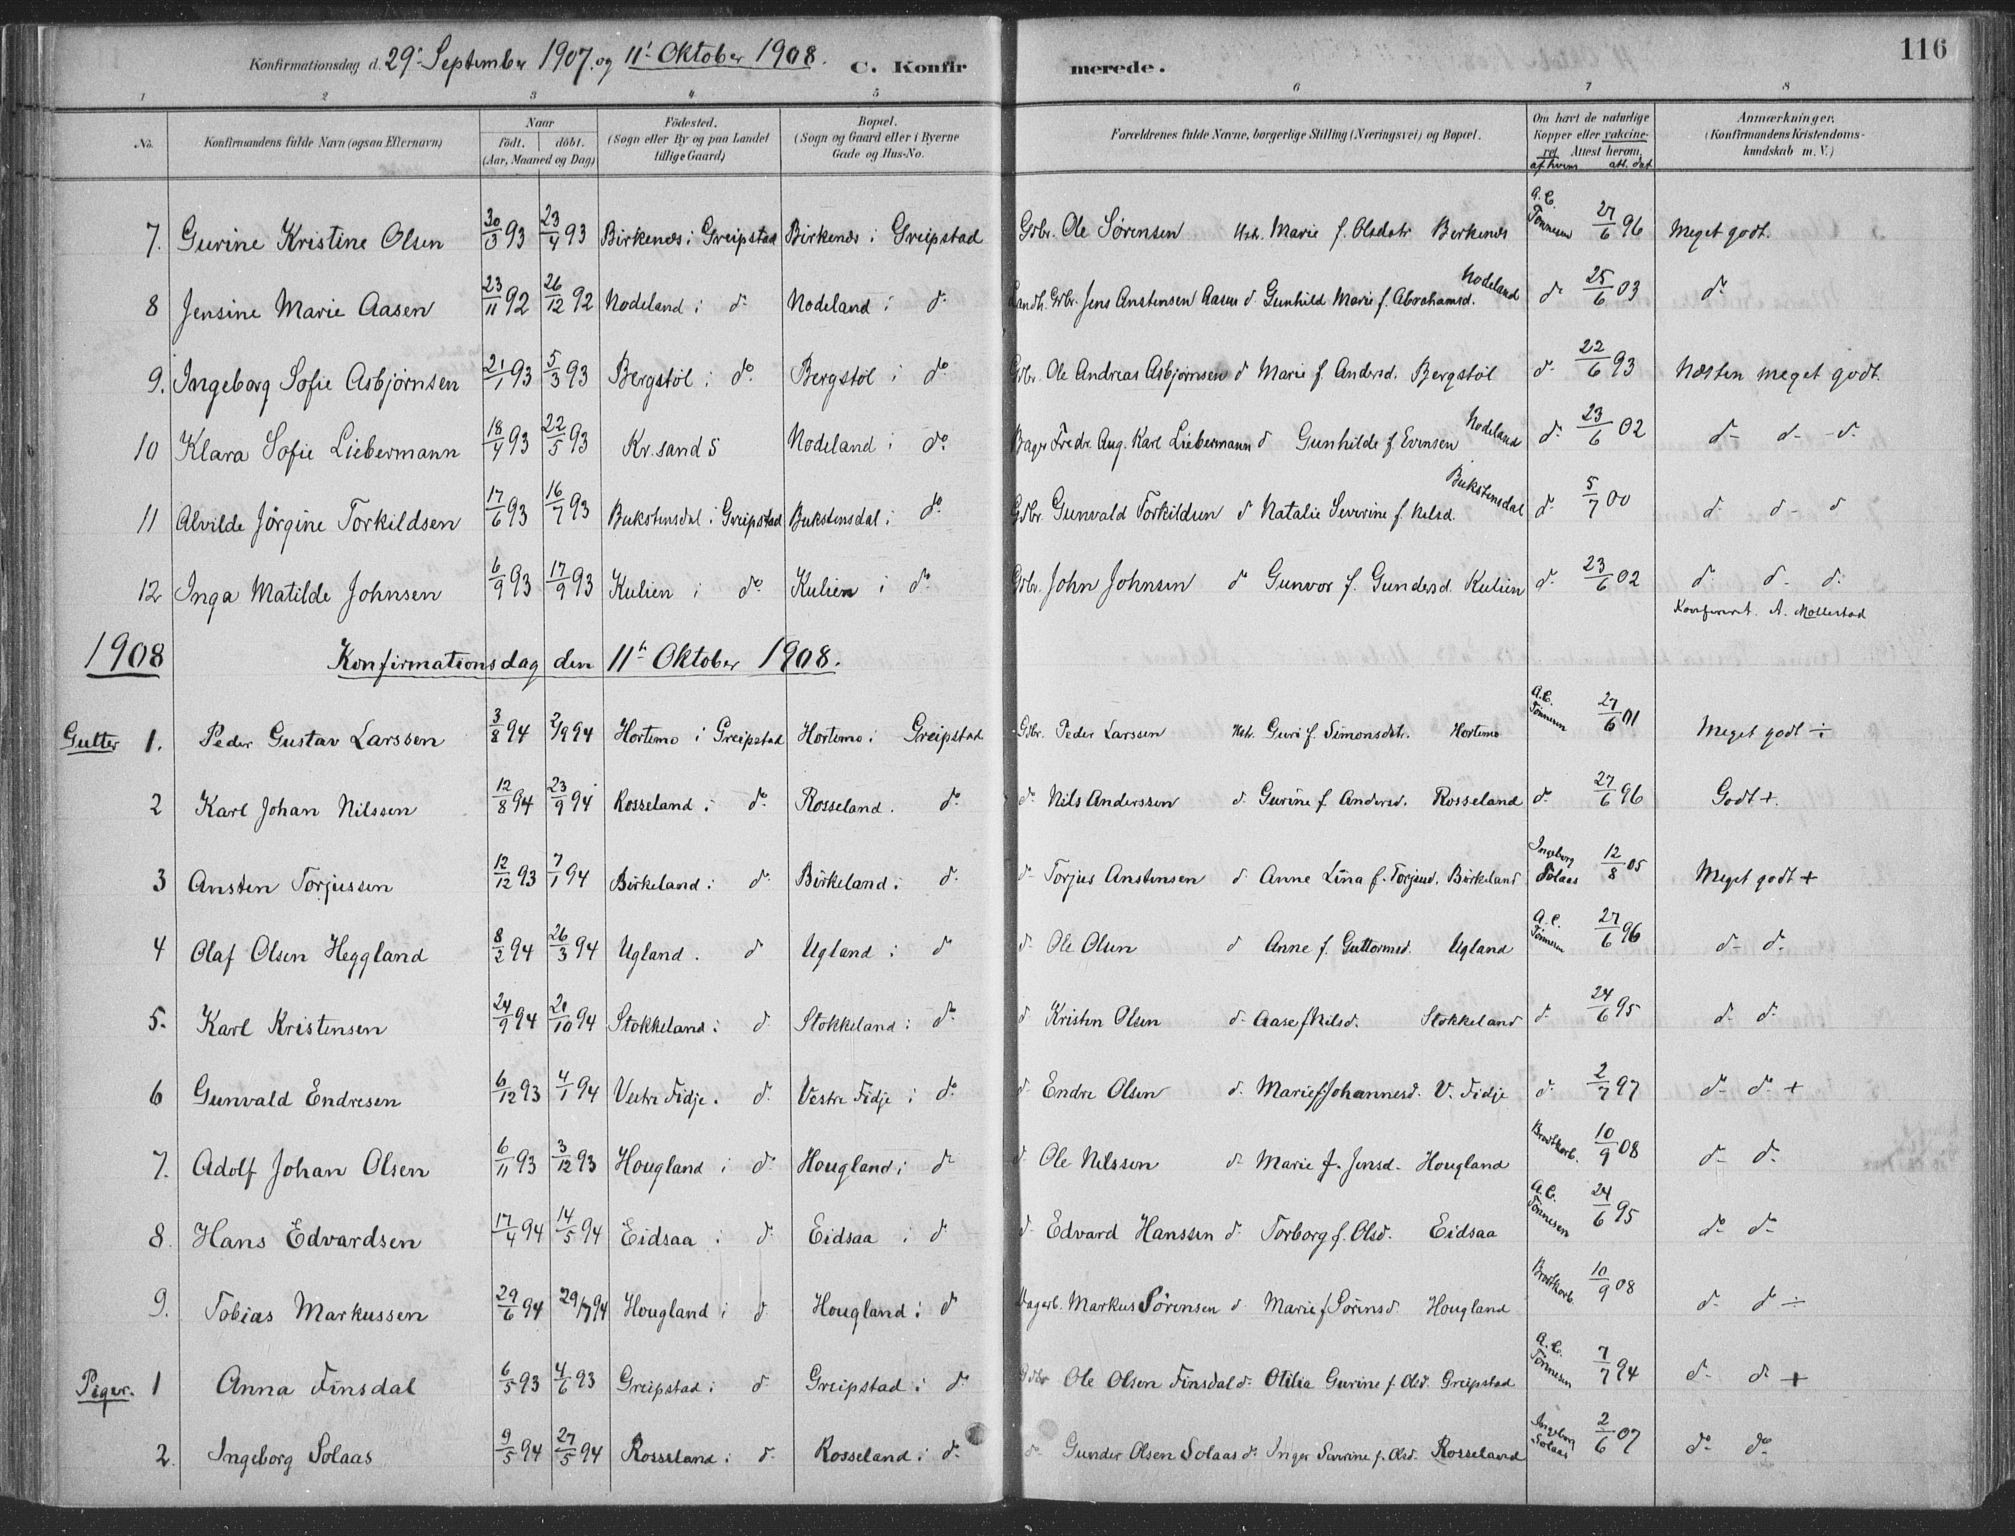 Konfirmationsdag d. 29de September 1907 og 11te Oktober 1908. C. Konfir merede. 116
1 2 3 4 5 6 7 8
No. Konfirmandens fulde Navn (ogsaa Efternavn) Naar født. døbt. (Aar, Maaned og Dag) Fødested. (Sogn eller By og paa Landet tillige Gaard) Bopæl. (Sogn og Gaard eller i Byerne Gade og Hus-No. Forældrenes fulde Navne, borgerlige Stilling (Næringsvei) og Bopæl. Om havt de naturlige Kopper eller vakcineret Attest herom, af hvem att. dat Anmærkninger. (Konfirmandens Kristendomskundskab m. V.)
7. Gurine Kristine Olsen 30/3 93 23/4 93 Birkenes i Greipstad Birkenes i Greipstad Gdbr. Ole Sørensen Hstr. Marie f. Olsdatr Berkenes A. C. Tønnesen 27/6 96 Meget godt.
8 Jensine Marie Aasen 23/11 92 26/12 92 Nodeland i do Nodeland i do Landh. Gdbr. Jens Anstensen Aasen do Gunhild Marie f. Abrahamsd. Nodeland do 25/6 03 do
9. Ingeborg Sofie Asbjörnsen 21/1 93 5/3 93 Bergstøl i do Bergstøl i do Gdbr. Ole Andreas Asbjørnsen do Marie f. Andersd. Bergstøl do 22/6 93 Næsten meget godt.
10 Klara Sofie Liebermann 18/4 93 22/5 93 Kr. sand S Nodeland i do Bager Fredr. Aug. Karl Liebermann do Gunhilde f. Evensen Nodeland do 23/6 02 do do do
11 Alvilde Jörgine Torkildsen 17/6 93 16/7 93 Bukstensdal i Greipstad Bukstensdal i do Gdbr Gunvald Torkildsen do Natalie Severine f. Nilsd. Bukstensdal do 5/7 00 do do do
12 Inga Matilde Johnsen 6/9 93 17/9 93 Kulien i do Kulien i do Gdbr. John Johnsen do Gunvor f. Gundersd. Kulien do 23/6 02 do do do
Konfereret A. Mollestad
1908 Konfirmationsdag den 11te Oktober 1908.
Gutter 1. Peder Gustav Larssen 3/8 94 2/9 94 Hortemo i Greipstad Hortemo i Greipstad Gdbr. Peder Larssen Hstr. Guri f. Simonsdtr. Hortemo A.C. Tønnesen 27/6 01 Meget godt ÷
2 Karl Johan Nilssen 12/8 94 23/9 94 Rosseland i do Rosseland. do do Nils Anderssen do Gurine f. Andersd. Rosseland do 27/6 96 Godt +.
3 Ansten Torjussen 12/12 93 7/1 94 Birkeland i do Birkeland i do do Torjus Anstensen do Anne Lina f. Torjusd. Birkeland Ingeborg Solaas 12/8 05 Meget godt +
4 Olaf Olsen Heggland 8/2 94 26/3 94 Ugland. do Ugland i do do Ole Olsen do Anne f. Guttormsd. Ugland A. C. Tønnesen 27/6 96 do do
5. Karl Kristensen 24/9 94 21/10 94 Stokkeland i do Stokkeland i do do Kristen Olsen do Aase f Nilsd. Stokkeland do 24/6 95 do do
6 Gunvald Endresen 6/12 93 4/1 94 Vestre Fidje. do Vestre Fidje i do do Endre Olsen do Marie f Johannesd. V. Fidje do 2/7 97 do do +
7. Adolf Johan Olsen 6/11 93 3/12 93 Hougland i do Hougland i do do Ole Nilssen do Marie f. Jensd. Hougland Brodtkorb. 10/9 08 do do
8. Hans Edvardsen 17/4 94 14/5 94 Eidsaa i do Eidsaa i do do Edvard Hanssen do Torborg f. Olsd. Eidsaa A. C. Tønnesen 24/6 95 do do
9. Tobias Markussen 29/6 94 29/7 94 Hougland i do Hougland i do Dagarb. Markus Sörensen do Marie f Sörensd. Hougland Brodtkorb. 10/9 08 do do ÷
Piger. 1 Anna Finsdal 6/5 93 4/6 93 Greipstad i do Greipstad i do Gdbr Ole Olsen Finsdal do Otilia Gurine f. Olsd. Greipstad A. C. Tønnesen 7/7 94 do do +
2. Ingeborg Solaas 9/5 94 27/5 94 Rosseland i do Rosseland i do do Gunder Olsen Solaas do Inger Severine f. Olsd. Rosseland Ingeborg Solaas 2/6 07 do do